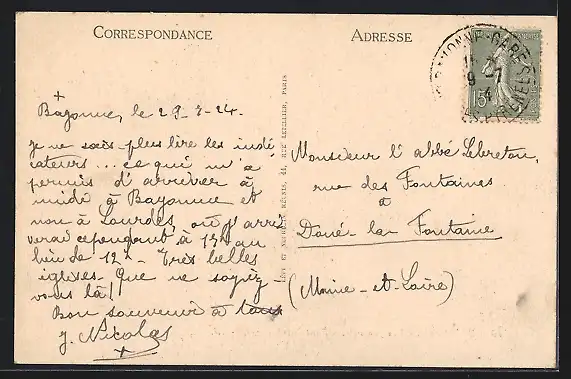 CORRESPONDANCE
ADRESSE
+
Bayonne, le 29-7-24.
je ne sais plus lire les indi
cateurs... ce qui m'a
permis d'arriver à
midi à Bayonne et
non à Lourdes, où j'arri
verai cependant à 15h au
lieu de 12h - Très belles
églises. Que ne soyez-
vous là!
Bon souvenir à tous
J. Nicolas
+
LÉVY ET NEURDEIN RÉUNIS, 44, RUE LETELLIER, PARIS
Monsieur l'abbé Lebreton,
rue des Fontaines
à
Doué-la-Fontaine
(Maine-et-Loire)
BAYONNE-GARE
15c